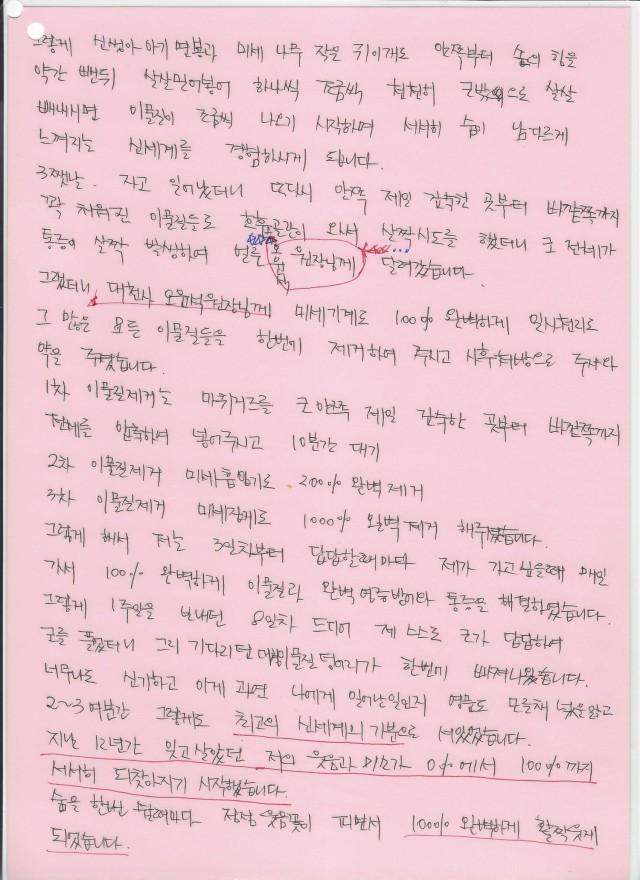 그렇게 신씻아 아기 면봉과 미세 나무 작은 귀이개도 안쪽부터 숨의 힘을
약간 뺀뒤 살살밀어넣어 하나씩 조금씩 천천히 콧밖으로 살살
빼내시면 이물질이 조금씩 나오기 시작하며 서서히 숨이 남다르게
느껴지는 신세계를 경험하시게 됩니다.
3쨋날. 자고 일어났더니 또다시 안쪽 제일 깊숙한 곳부터 바깥쪽까지
꽉 채워진 이물질들로 호흡곤란이 와서 살짝 시도를 했더니 코 전체가
통증이 살짝 발생하여 얼른 오원석 원장님께 달려갔습니다.
그랬더니 대천사 오원석원장님께 미세기계로 100% 완벽하게 일사천리로
그 많은 모든 이물질들을 한번에 제거하여 주시고 사후처방으로 주사와
약을 주셨습니다.
1차 이물질제거는 마취거즈를 코 안쪽 제일 깊숙한 곳부터 바깥쪽까지
전체를 압축하여 넣어주시고 10분간 대기
2차 이물질제거 미세흡입기로 200% 완벽제거
3차 이물질제거 미세집게로 1000% 완벽제거 해주셨습니다.
그렇게 해서 저는 3일차부터 답답할때마다 제가 가고싶을때 매일
가서 100% 완벽하게 이물질과 완벽 염증방어와 통증을 해결하였습니다.
그렇게 1주일을 보내던 8일차 드디어 제 스스로 코가 답답하여
코를 풀었더니 그리 기다리던 대왕이물질 덩어리가 한번에 빠져나왔습니다.
너무나도 신기하고 이게 과연 나에게 일어난일인지 영문도 모를채 넋을잃고
2~3여분간 그렇게도 최고의 신세계의 기분으로 서있었습니다.
지난 12년간 잊고살았던 저의 웃음과 미소가 0%에서 100%까지
서서히 되찾아지기 시작했습니다.
숨을 한번 쉴때마다 점점 웃음꽃이 피면서 1000% 완벽하게 활짝웃게
되었습니다.